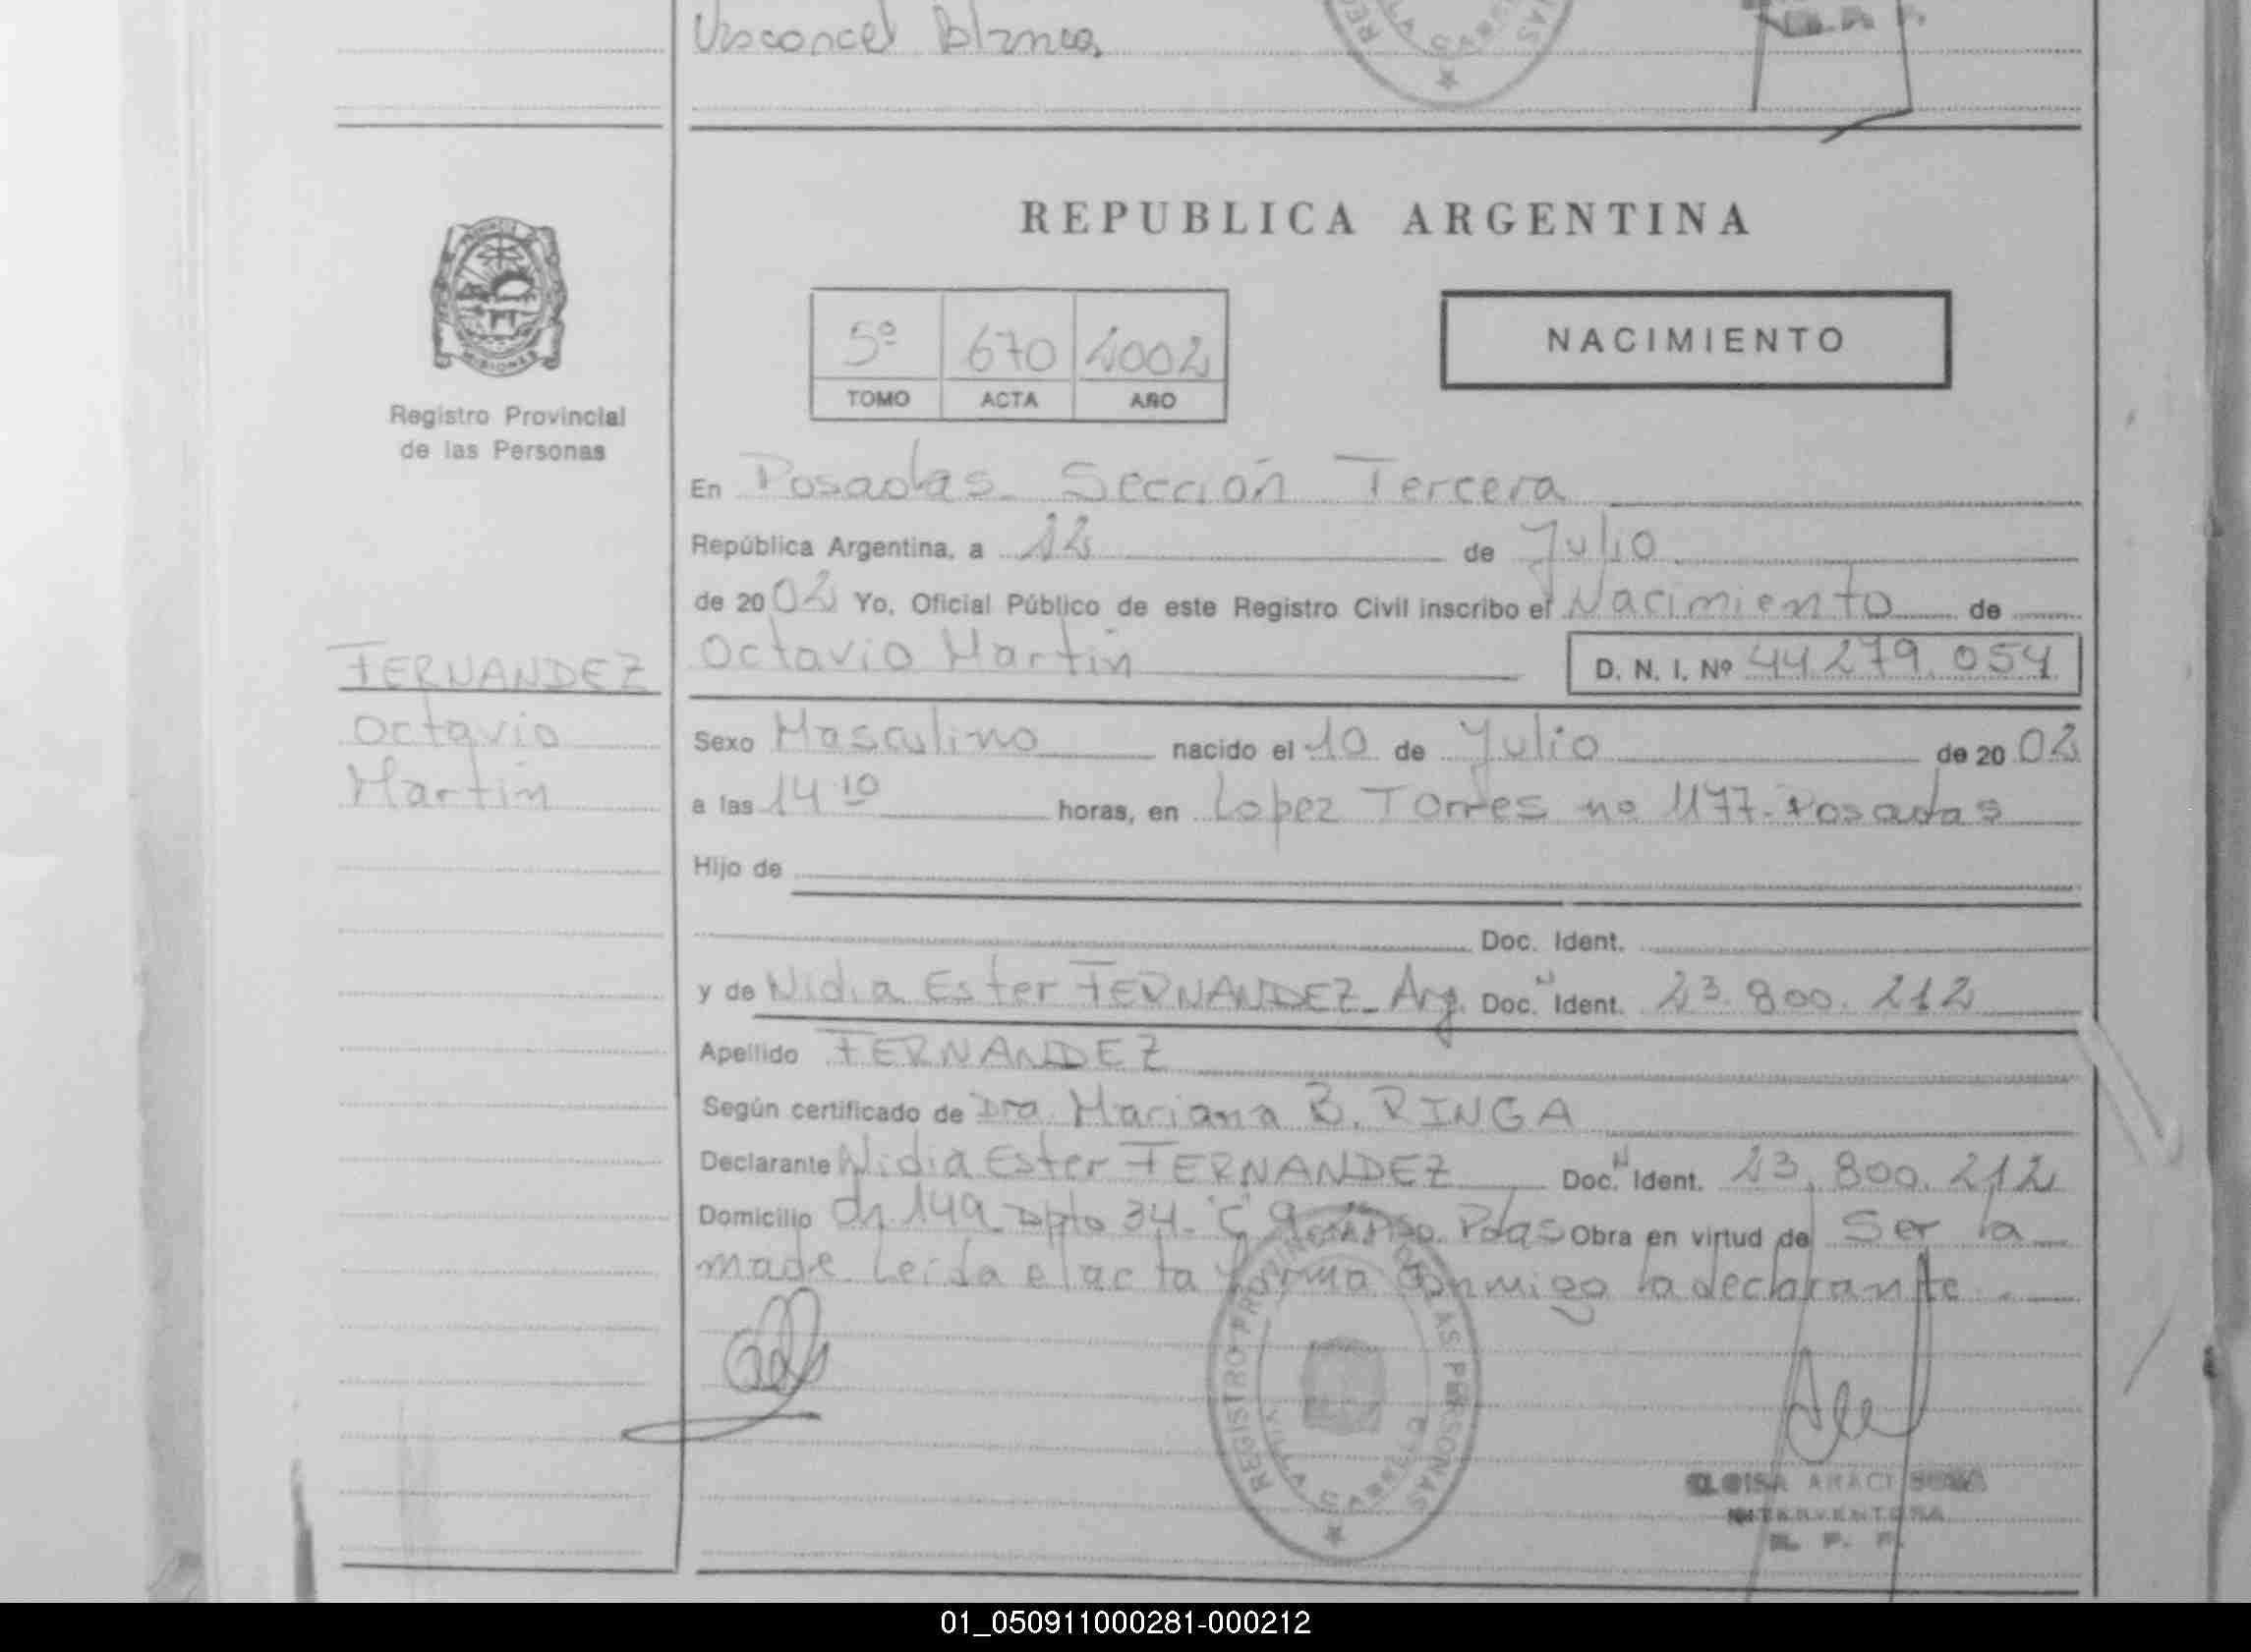 Blanca
REPUBLICA ARGENTINA
5º 670 2002
TOMO ACTA AÑO
NACIMIENTO
MISIONES
Registro Provincial
de las Personas
En Posadas Sección Tercera
República Argentina, a 12 de Julio
de 2002 Yo, Oficial Público de este Registro Civil inscribo el Nacimiento de
FERNANDEZ
Octavio
Martin
Octavio Martin D. N. I. Nº 44.279.054
Sexo Masculino nacido el 10 de Julio de 2002
a las 14 10 horas, en Lopez Torres no 1177 - Posadas
Hijo de
Doc. Ident.
y de Nidia Ester FERNANDEZ - Arg. Doc. Ident. 23.800.212
Apellido FERNANDEZ
Según certificado de Dra. Mariana B. RINGA
Declarante Nidia Ester FERNANDEZ Doc. Ident. 23.800.212
Domicilio Ch. 149 Dpto 34 - "C" Pdas Obra en virtud de Ser la
madre Leída el acta firma conmigo la declarante.
REGISTRO PROVINCIAL DE LAS PERSONAS
VILLA CABELLO
INTERVENTORA
R. P. P.
01_050911000281-000212